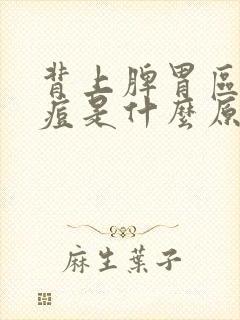 背上脾胃區
痘是什麼原
麻生葉子